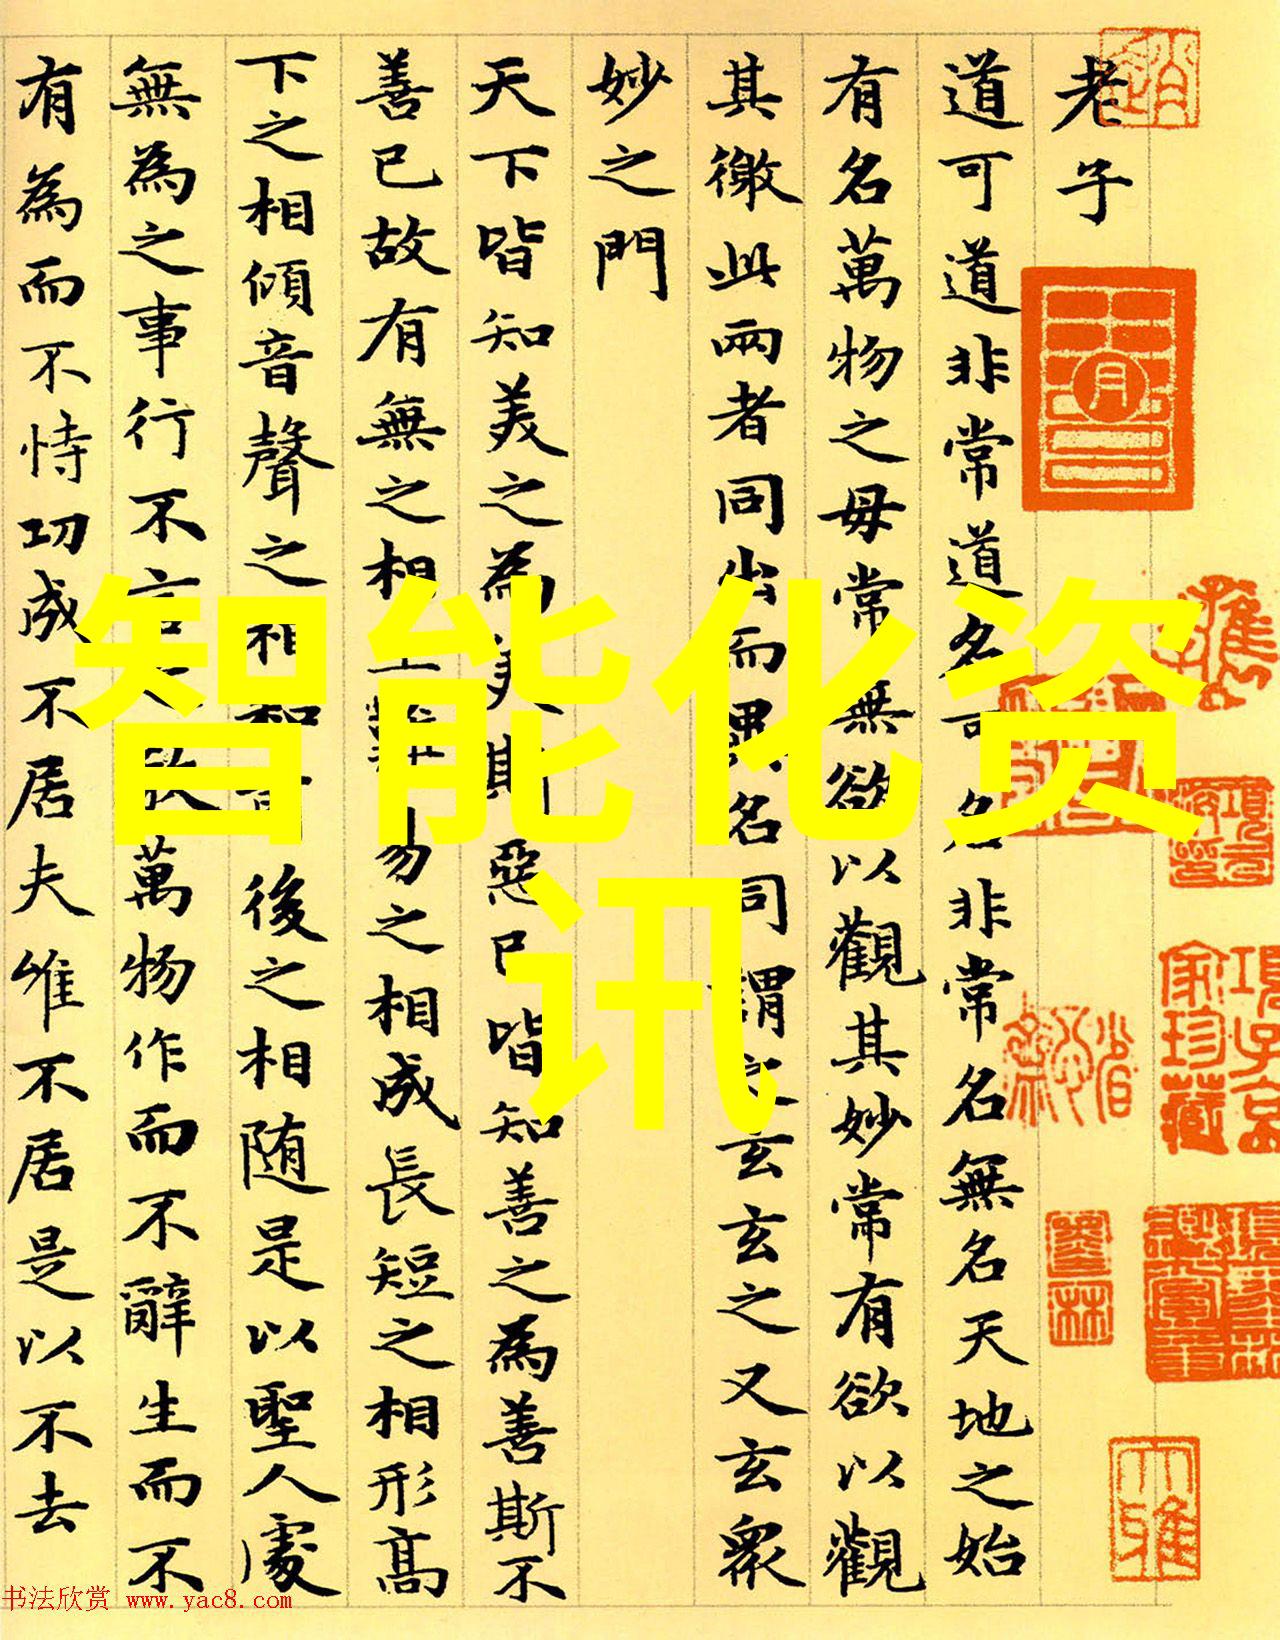 老子
道可道非常道名可名非常名無名天地之始
有名萬物之母常無欲以觀其妙常有欲以觀
其徼此兩者同出而異名同謂之玄玄之又玄衆
妙之門
天下皆知美之為美斯惡已皆知善之為善斯不
善已故有無之相生難易之相成長短之相形高
下之相傾音聲之相和前後之相随是以聖人處
無為之事行不言之教萬物作而不辭生而不
有為而不恃功成不居夫唯不居是以不去
智能化资
讯
項子京
家珍藏
书法欣赏 www.yac8.com